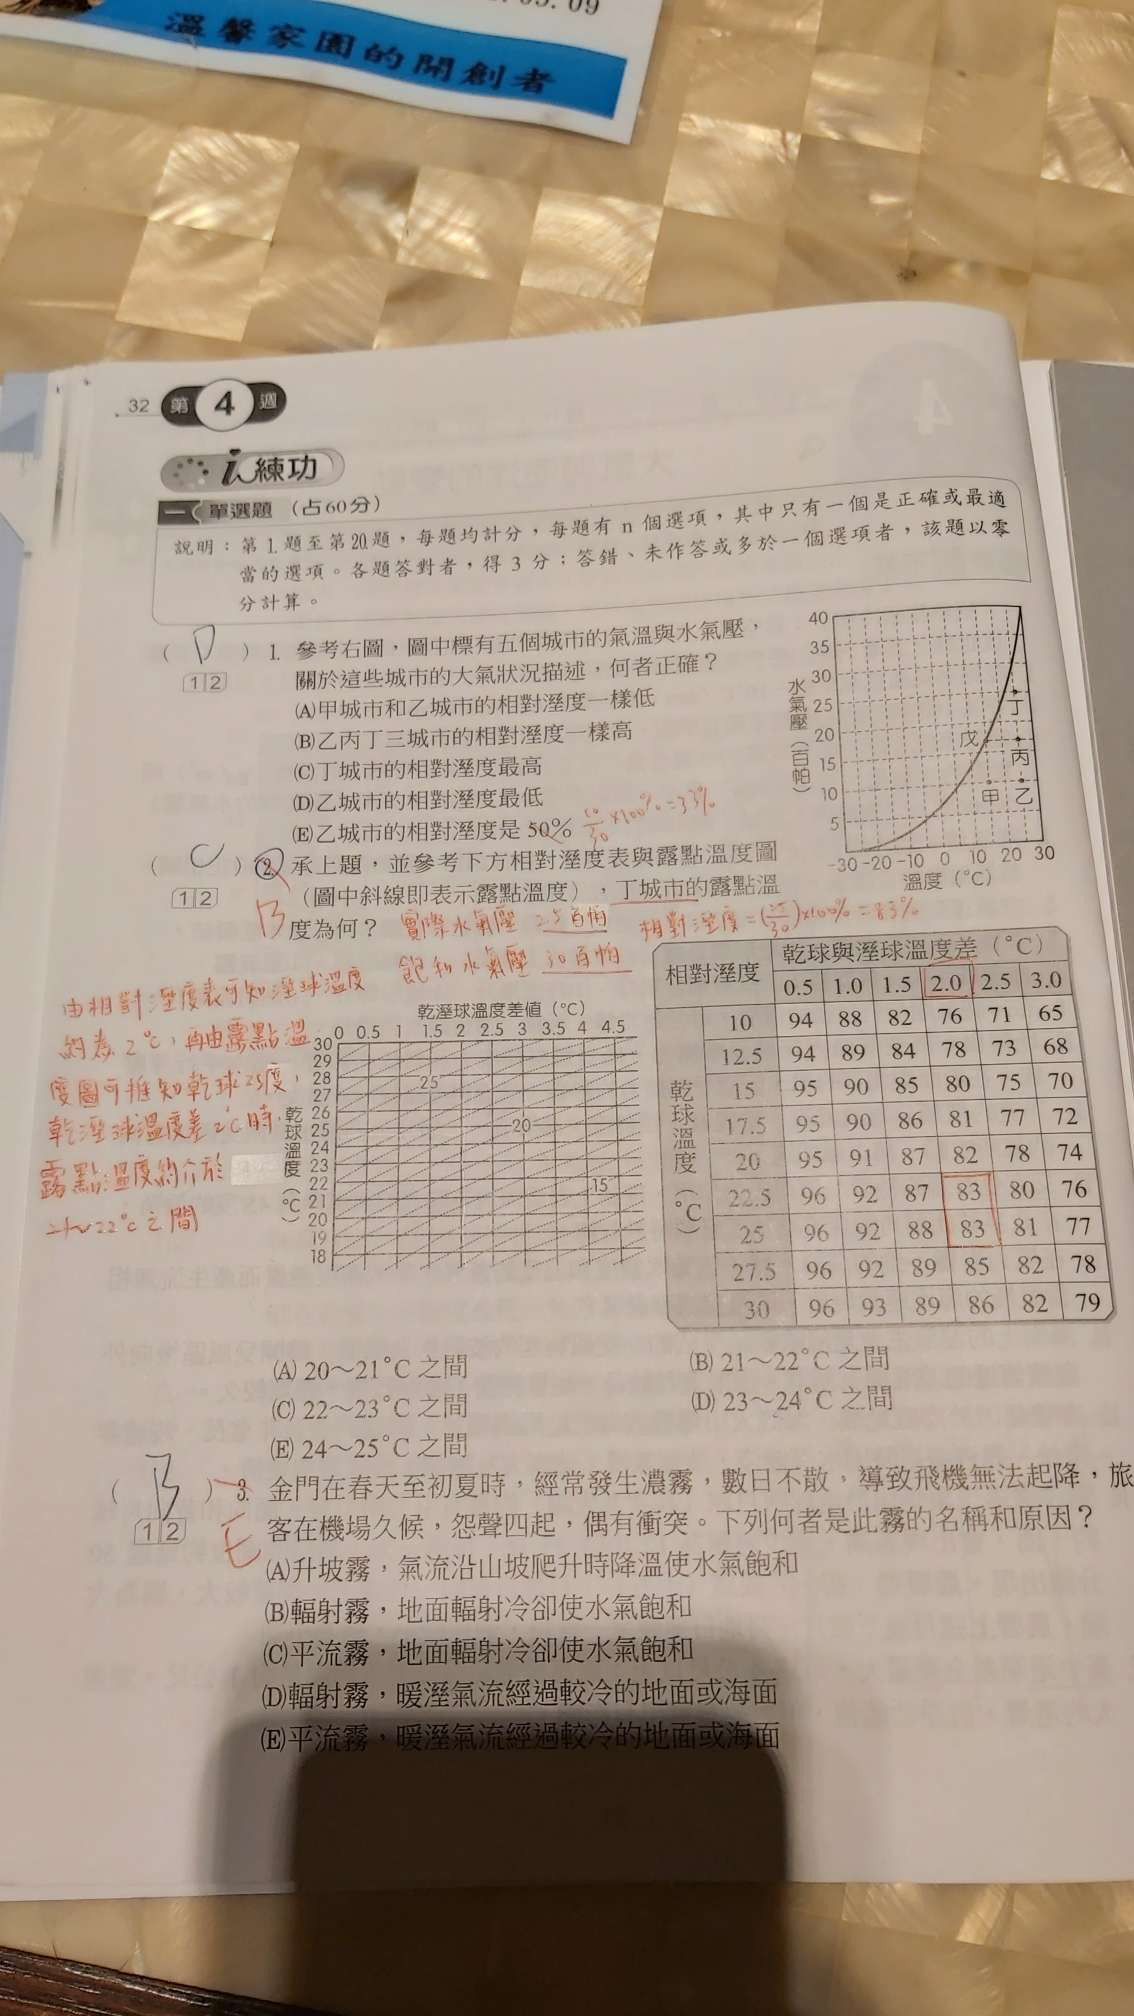 09
溫馨家園的開創者
32 第4週
i練功
一 單選題（占60分）
說明：第1.題至第20.題，每題均計分，每題有 n 個選項，其中只有一個是正確或最適
當的選項。各題答對者，得 3 分；答錯、未作答或多於一個選項者，該題以零
分計算。
（ D ）1. 參考右圖，圖中標有五個城市的氣溫與水氣壓，
1 2 關於這些城市的大氣狀況描述，何者正確？
(A)甲城市和乙城市的相對溼度一樣低
(B)乙丙丁三城市的相對溼度一樣高
(C)丁城市的相對溼度最高
(D)乙城市的相對溼度最低
(E)乙城市的相對溼度是 50% 10/30 ×100%=33%
水氣壓（百帕）
40
35
30
25
20
15
10
5
丁
戊
丙
甲 乙
-30 -20 -10 0 10 20 30
溫度（°C）
（ C ）2. 承上題，並參考下方相對溼度表與露點溫度圖
1 2 （圖中斜線即表示露點溫度），丁城市的露點溫
B 度為何？ 實際水氣壓 25百帕 相對溼度=(25/30)×100%=83%
飽和水氣壓 30百帕
由相對溼度表可知溼球溫度
約為 2°C，再由露點溫
度圖可推知乾球25度，
乾溼球溫度差2°C時，
露點溫度約介於
21~22°C之間
乾溼球溫度差值（°C）
0 0.5 1 1.5 2 2.5 3 3.5 4 4.5
乾球溫度（°C）
30
29
28
27
26
25
24
23
22
21
20
19
18
25
20
15
相對溼度 乾球與溼球溫度差（°C）
0.5 1.0 1.5 2.0 2.5 3.0
乾球溫度（°C）
10 94 88 82 76 71 65
12.5 94 89 84 78 73 68
15 95 90 85 80 75 70
17.5 95 90 86 81 77 72
20 95 91 87 82 78 74
22.5 96 92 87 83 80 76
25 96 92 88 83 81 77
27.5 96 92 89 85 82 78
30 96 93 89 86 82 79
(A) 20～21°C 之間 (B) 21～22°C 之間
(C) 22～23°C 之間 (D) 23～24°C 之間
(E) 24～25°C 之間
（ B ）3. 金門在春天至初夏時，經常發生濃霧，數日不散，導致飛機無法起降，旅
1 2 客在機場久候，怨聲四起，偶有衝突。下列何者是此霧的名稱和原因？
E
(A)升坡霧，氣流沿山坡爬升時降溫使水氣飽和
(B)輻射霧，地面輻射冷卻使水氣飽和
(C)平流霧，地面輻射冷卻使水氣飽和
(D)輻射霧，暖溼氣流經過較冷的地面或海面
(E)平流霧，暖溼氣流經過較冷的地面或海面